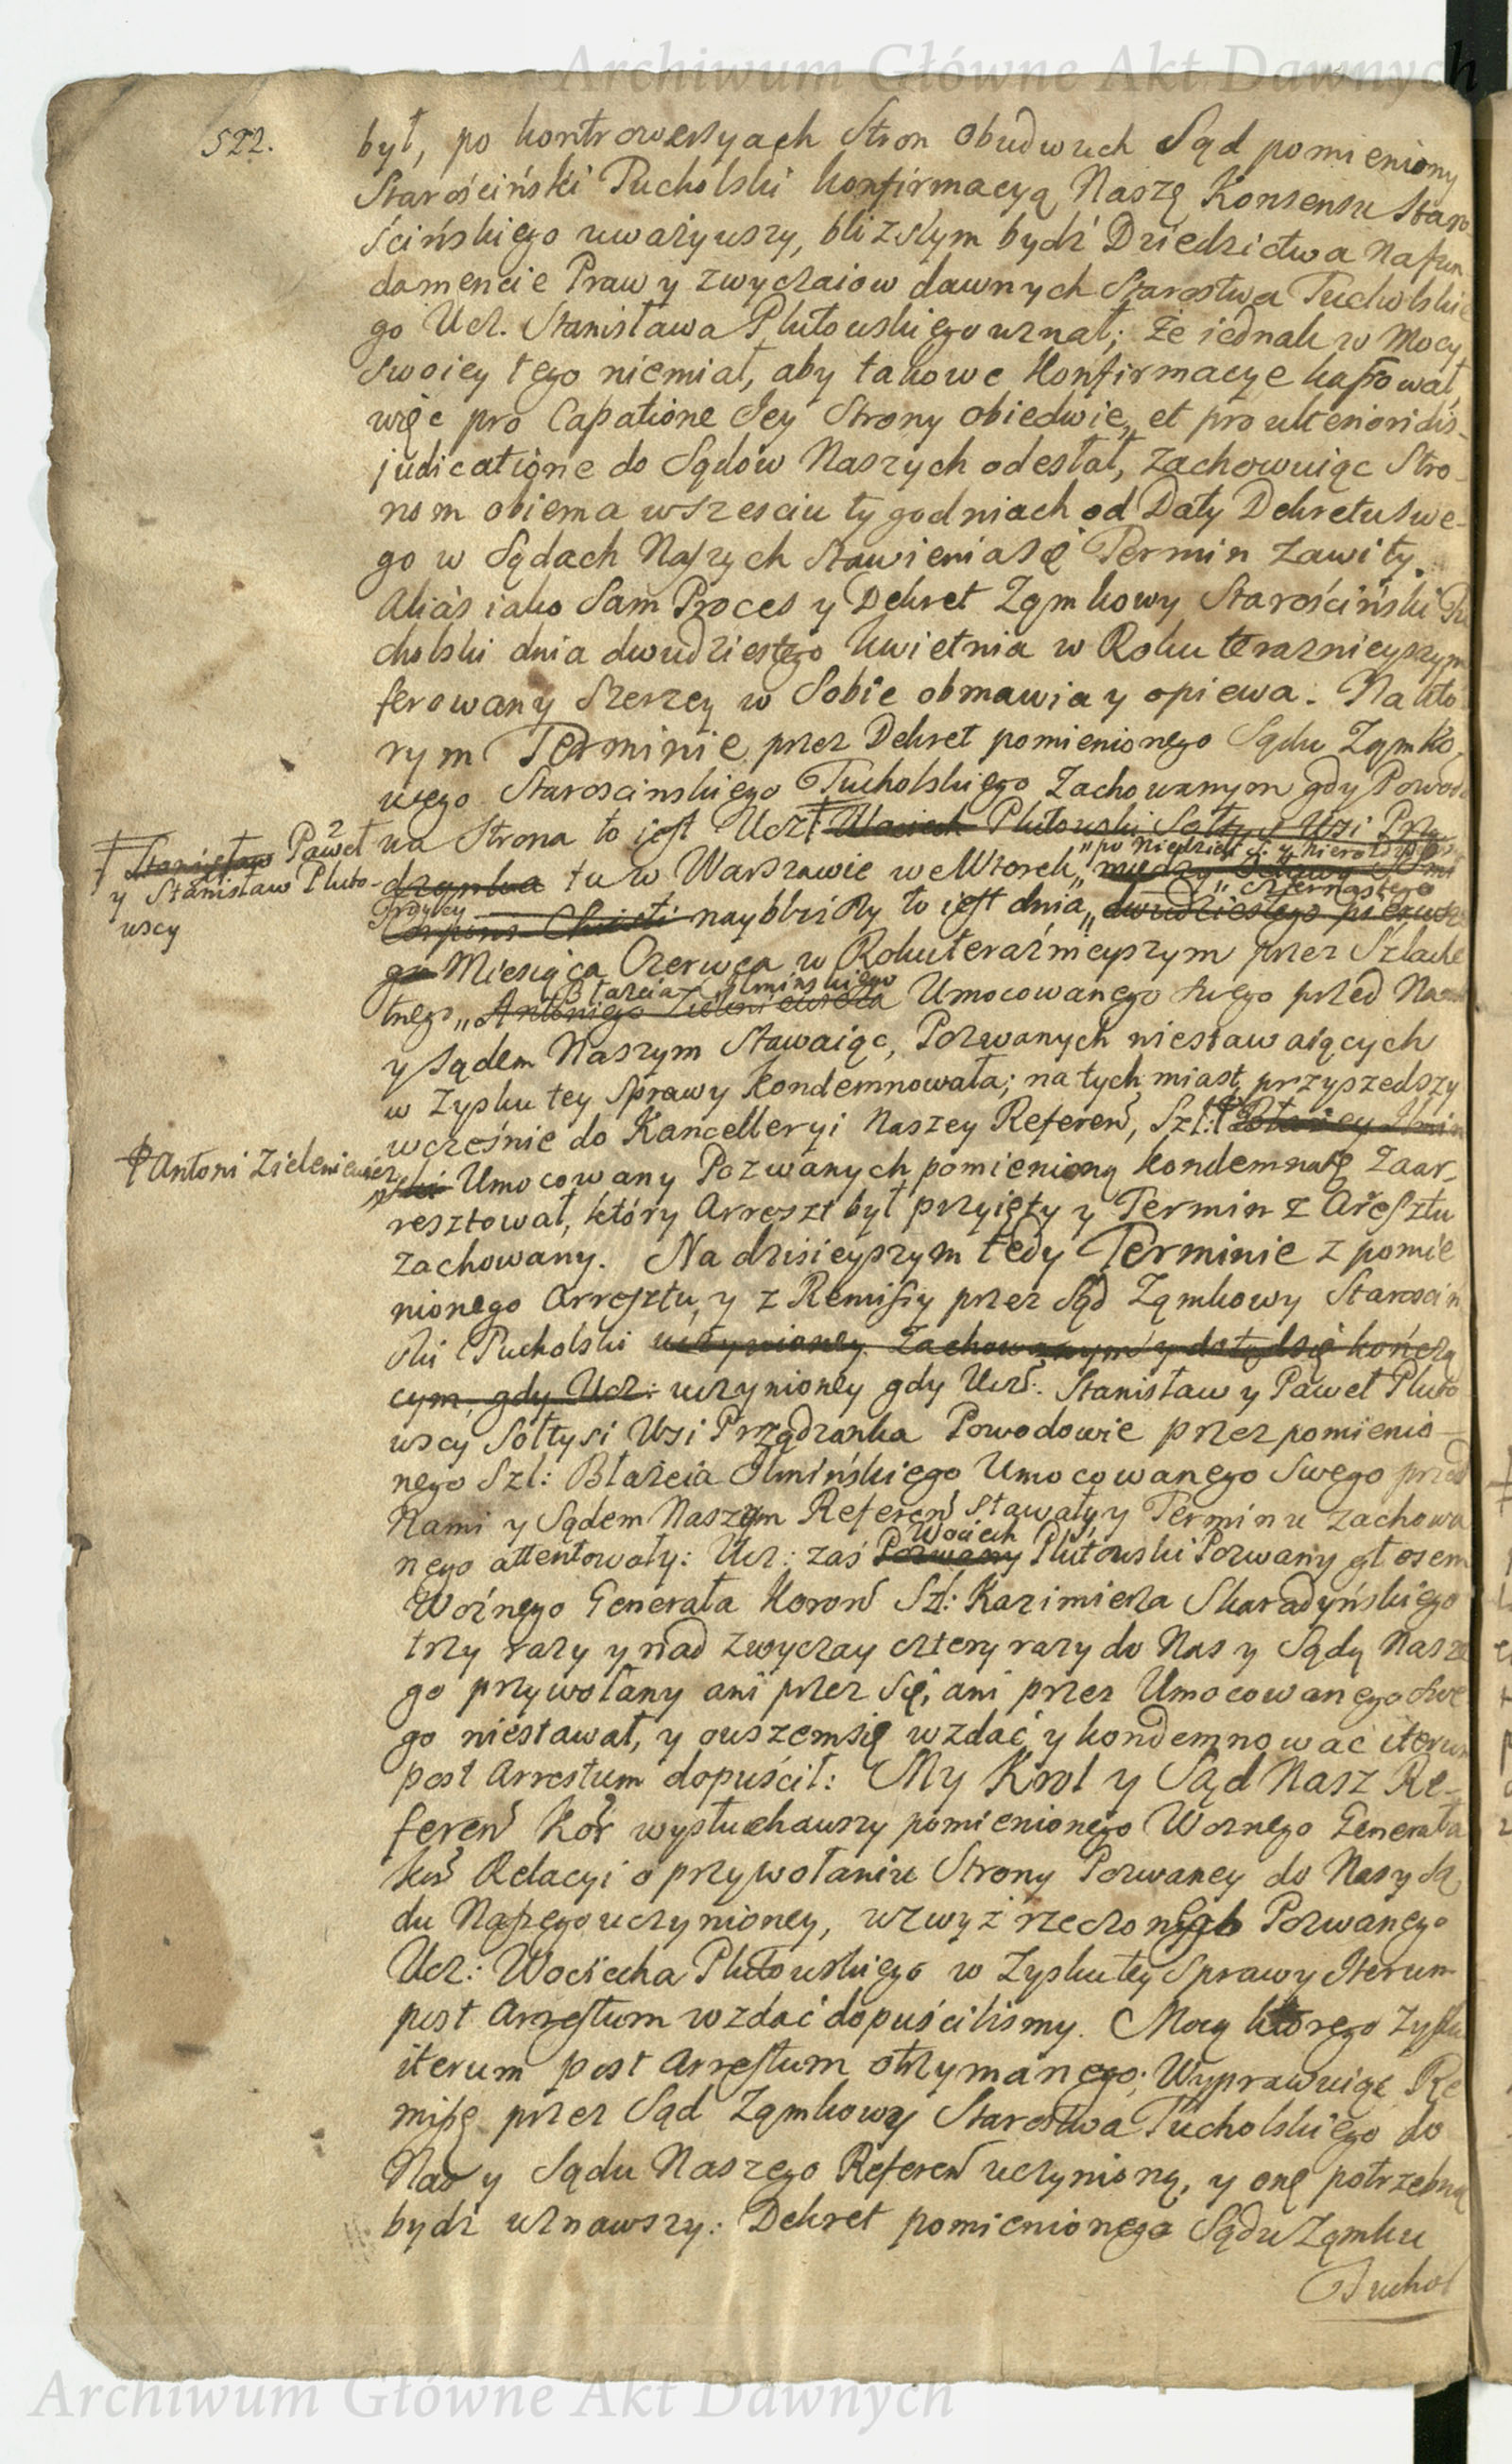 Archiwum Główne Akt Dawnych
522.
był, po kontrowersyach Stron obudwuch Sąd pomieniony
Starościński Tucholski konfirmacyą Naszę Konsensu Staro
ścińskiego uważywszy, bliższym bydź Dziedzictwa na fun
damencie Praw y zwyczaiow dawnych Starostwa Tucholskie
go Ucz. Stanisława Plutowskiego uznał; że iednak w mocy
swoiey tego niemiał, aby takowe konfirmacye kassował,
więc pro Cassatione Jey Strony obiedwie, et pro ulteriori dis-
judicatione do Sądów Naszych odesłał, zachowuiąc Stro-
nom obiema w sześciu tygodniach od Daty Dekretu swe-
go w Sądach Naszych stawienia się Termin zawity.
Aliàs iako Sam Proces y Dekret Zamkowy Starościński Tu
cholski dnia dwudziestego kwietnia w Roku teraznieyszym
ferowany szerzey w Sobie obmawia y opiewa. Na kto
rym Terminie przez Dekret pomienionego Sądu Zamko,
wego Starościnskiego Tucholskiego zachowanym gdy Powod
wa Strona to jest Ucz: Woiciech Plutowski Sołtys Wsi Przą
† Stanisław Paweł 2
y Stanisław Pluto-
wscy
po Niedzieli
dzonka tu w Warszawie we Wtorek
czternastego
Troycy
Corporis Christi nayblizszy to jest dnia dwudziestego pierwsze
go Miesiąca Czerwca w Roku teraźnieyszym przez Szlache
Błażeia Ilmińskiego
tnego Antoniego Zieleniewicza Umocowanego swego przed Nami
y Sądem Naszym stawaiąc, Pozwanych niestawaiących
w Zysku tey Sprawy kondemnowała; natychmiast przyszedszy
wcześnie do Kancelleryi Naszey Referen̄, Szl: † Błażey Ilmin
† Antoni Zieleniewicz
ski Umocowany Pozwanych pomienioną kondemnatę zaar-
resztował, który Arreszt był przyięty y Termin z Aresztu
zachowany. Na dzisieyszym tedy Terminie z pomie
nionego Arresztu, y z Remissy przez Sąd Zamkowy Starościń
ski Tucholski uczynioney zachowanym y dotąd się kończą
cym, gdy Ucz: uczynioney gdy Ucz: Stanisław y Paweł Pluto
wscy Sołtysi Wsi Prządzonka Powodowie przez pomienio-
nego Szl: Błażeia Ilmińskiego Umocowanego Swego przed
Nami y Sądem Naszym Referen̄ stawały y Terminu zachowa
nego attentowały: Ucz: zaś
Woiciech
Pozwany Plutowski Pozwany głosem
Woźnego Generała Koron̄ Szl: Kazimierza Skaradyńskiego
trzy razy y nad zwyczay cztery razy do Nas y Sądu Nasze
go przywołany ani przez się, ani przez Umocowanego Swe
go niestawał, y owszem się wzdać y kondemnować iterum
post Arrestum dopuścił: My Krol y Sąd Nasz Re-
feren̄ Kor̄ wysłuchawszy pomienionego Woznego Generała
Kor̄ Relacyi o przywołaniu Strony Pozwaney do Nas y Są
du Naszego uczynioney, wzwyż rzeczonego Pozwanego
Ucz: Wociecha Plutowskiego w Zysku tey Sprawy Iterum
post Arrestum wzdać dopuścilismy. Mocą ktorego Zysku
iterum post Arrestum otrzymanego; Wyprawuiąc Re
missę przez Sąd Zamkowy Starostwa Tucholskiego do
Nas y Sądu Naszego Referen̄ uczynioną, y onę potrzebną
bydź uznawszy: Dekret pomienionego Sądu Zamku
Tuchol
Archiwum Główne Akt Dawnych